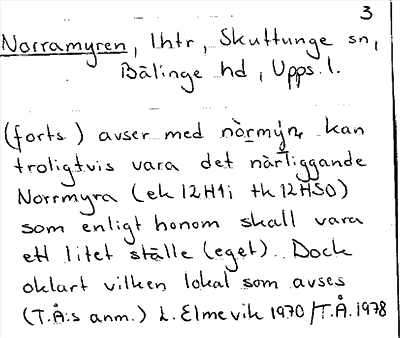 3
Norramyren, lhtr, Skuttunge sn,
Bälinge hd, Upps. l.
(forts) avser med nòrmýṇ kan
troligtvis vara det närliggande
Norrmyra (ek 12H1i tk 12HSO)
som enligt honom skall vara
ett litet ställe (eget). Dock
oklart vilken lokal som avses
(T.Å:s anm.) L. Elmevik 1970/T.Å. 1978